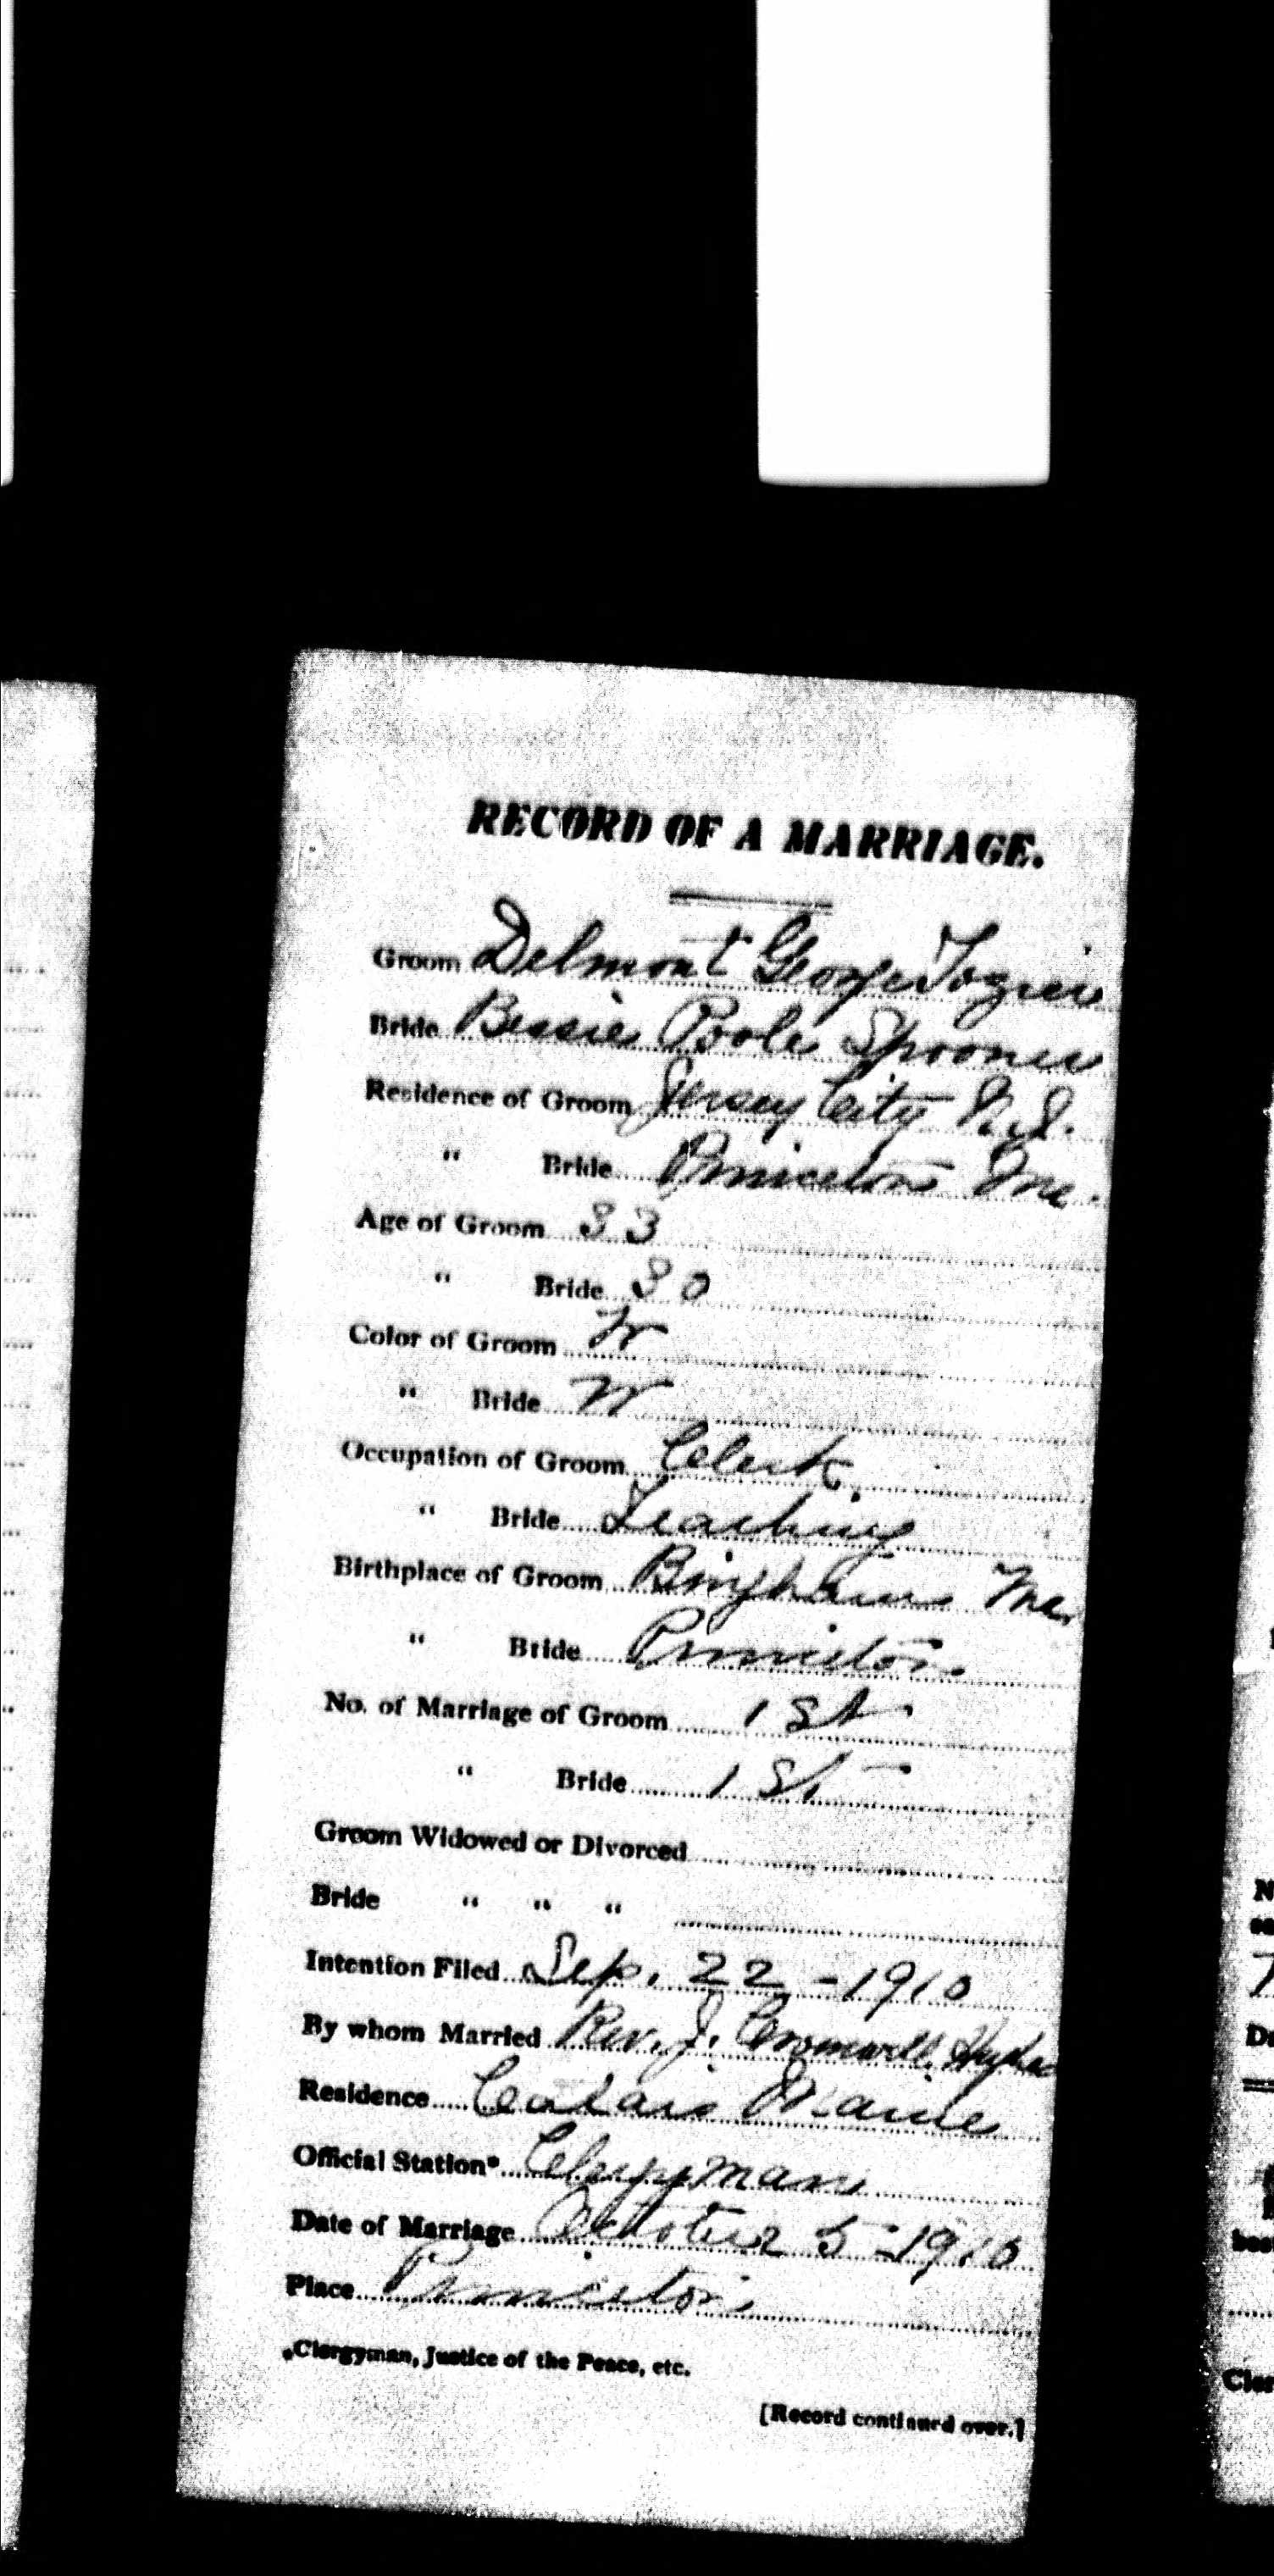 RECORD OF A MARRIAGE.
Groom Delmont George Tozier
Bride Bessie Poole Spooner
Residence of Groom Jersey City N.J.
" Bride Princeton Me.
Age of Groom 33
" Bride 30
Color of Groom W
" Bride W
Occupation of Groom Clerk
" Bride Teaching
Birthplace of Groom Bingham Me.
" Bride Princeton
No. of Marriage of Groom 1st
" Bride 1st
Groom Widowed or Divorced
Bride " " "
Intention Filed Sep. 22 - 1910
By whom Married Rev. J. Cromwell Hughes
Residence Calais Maine
Official Station* Clergyman
Date of Marriage October 5 - 1910
Place Princeton
*Clergyman, Justice of the Peace, etc.
[Record continued over.]